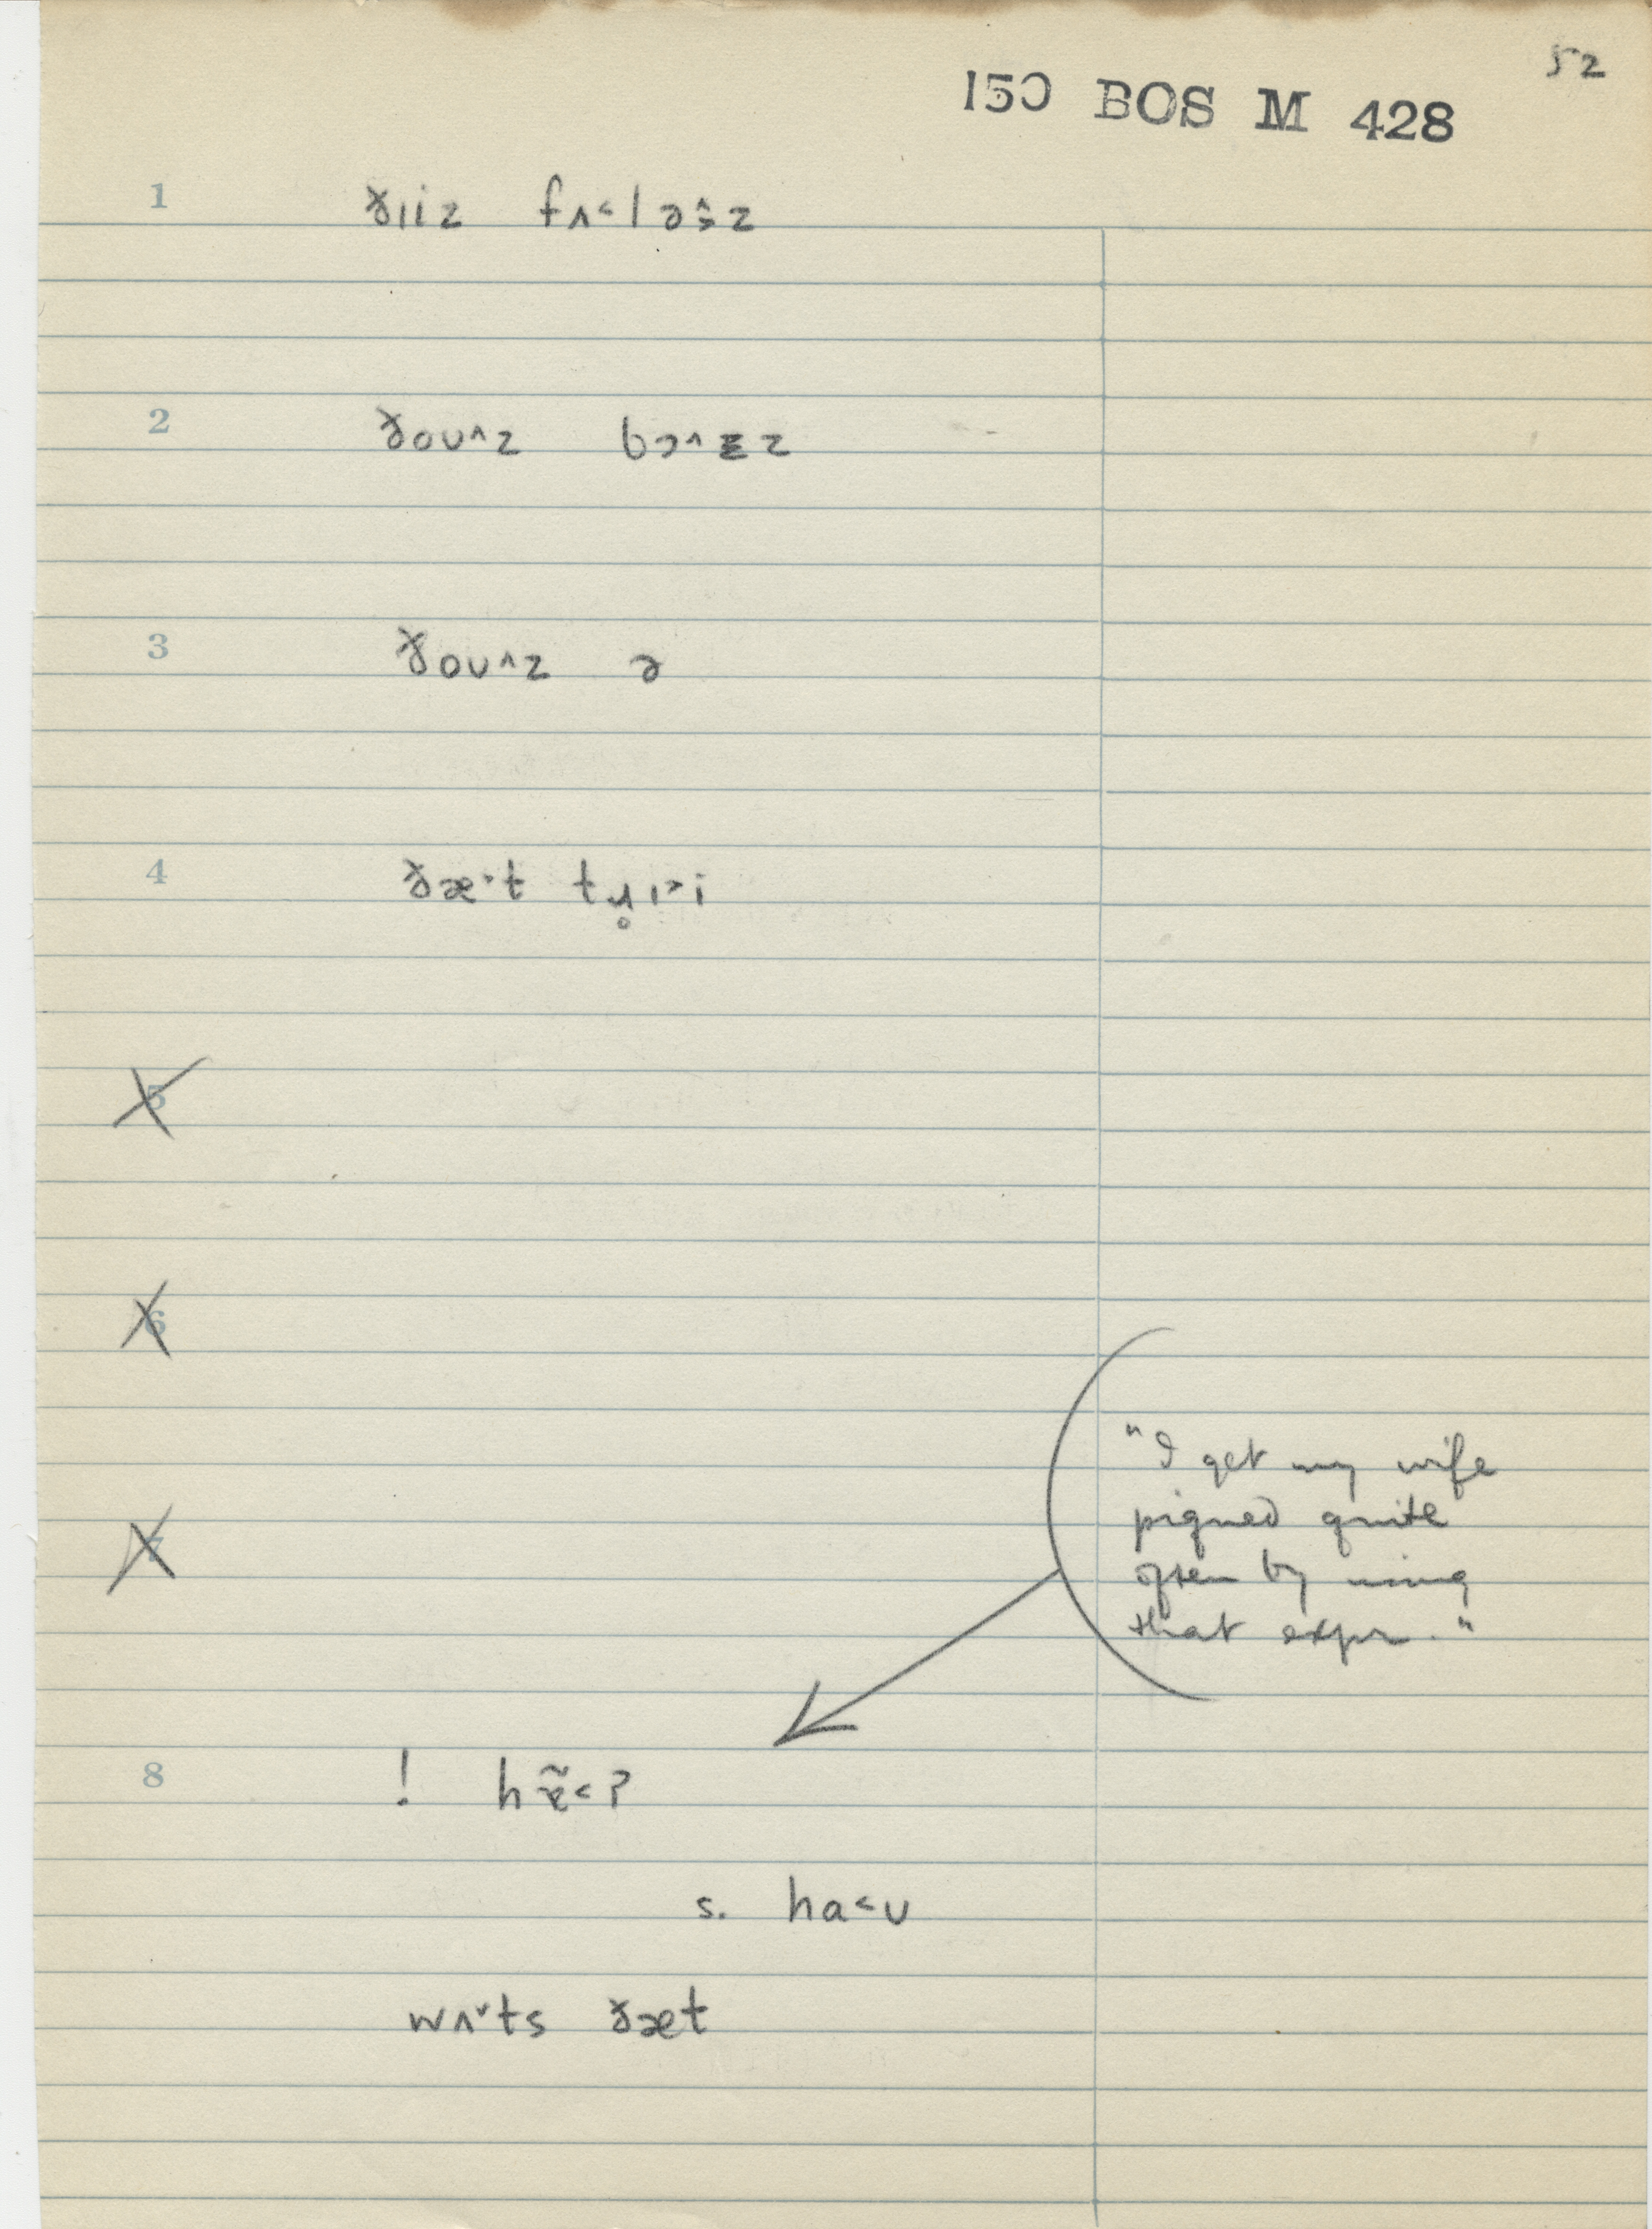 52
150 BOS M 428
1 ðɪiz fʌ˂ləŝ̬z
2 ðoʊ^z bɔ^ɪz
3 ðoʊ^z ə
4 ðæ˃t tɹ̥ɪ˃i
5
6
7
"I get my wife
piqued quite
often by using
that expr."
8 ! hæ̃˂ʔ
s. ha˂ʊ
wʌ˅ts ðæt